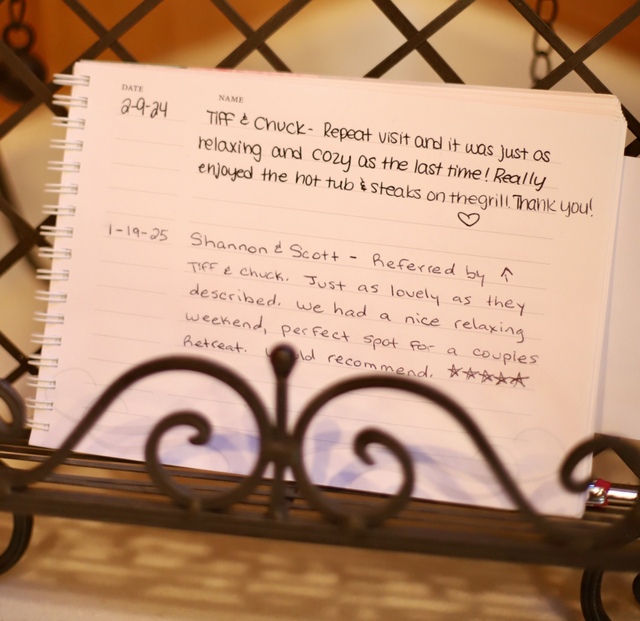 DATE NAME
2-9-24 TIFF & Chuck- Repeat visit and it was just as
relaxing and cozy as the last time! Really
enjoyed the hot tub & steaks on the grill. Thank you!
♡
1-19-25 Shannon & Scott - Referred by ↑
TIFF & Chuck. Just as lovely as they
described. We had a nice relaxing
weekend, perfect spot for a couples
Retreat. recommend. ☆☆☆☆☆